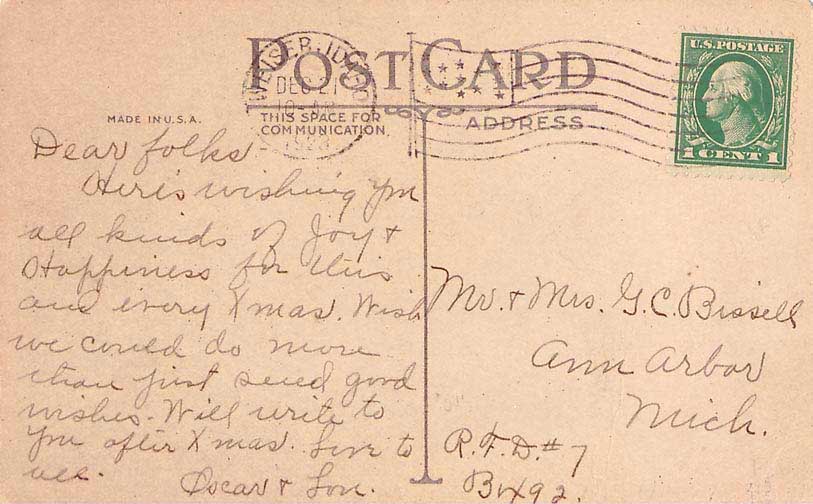 POST CARD
WEISER, IDAHO
DEC 21
10 AM
1923
U.S. POSTAGE
1 CENT 1
MADE IN U.S.A.
THIS SPACE FOR
COMMUNICATION,
ADDRESS
Dear folks
Here's wishing you
all kinds of Joy &
Happiness for this
and every Xmas. Wish
we could do more
than just send good
wishes. Will write to
you after Xmas. Love to
all.
Oscar &
Mr. & Mrs. G. C. Bissell
Ann Arbor
Mich.
R. F. D. # 7
Bx 92.